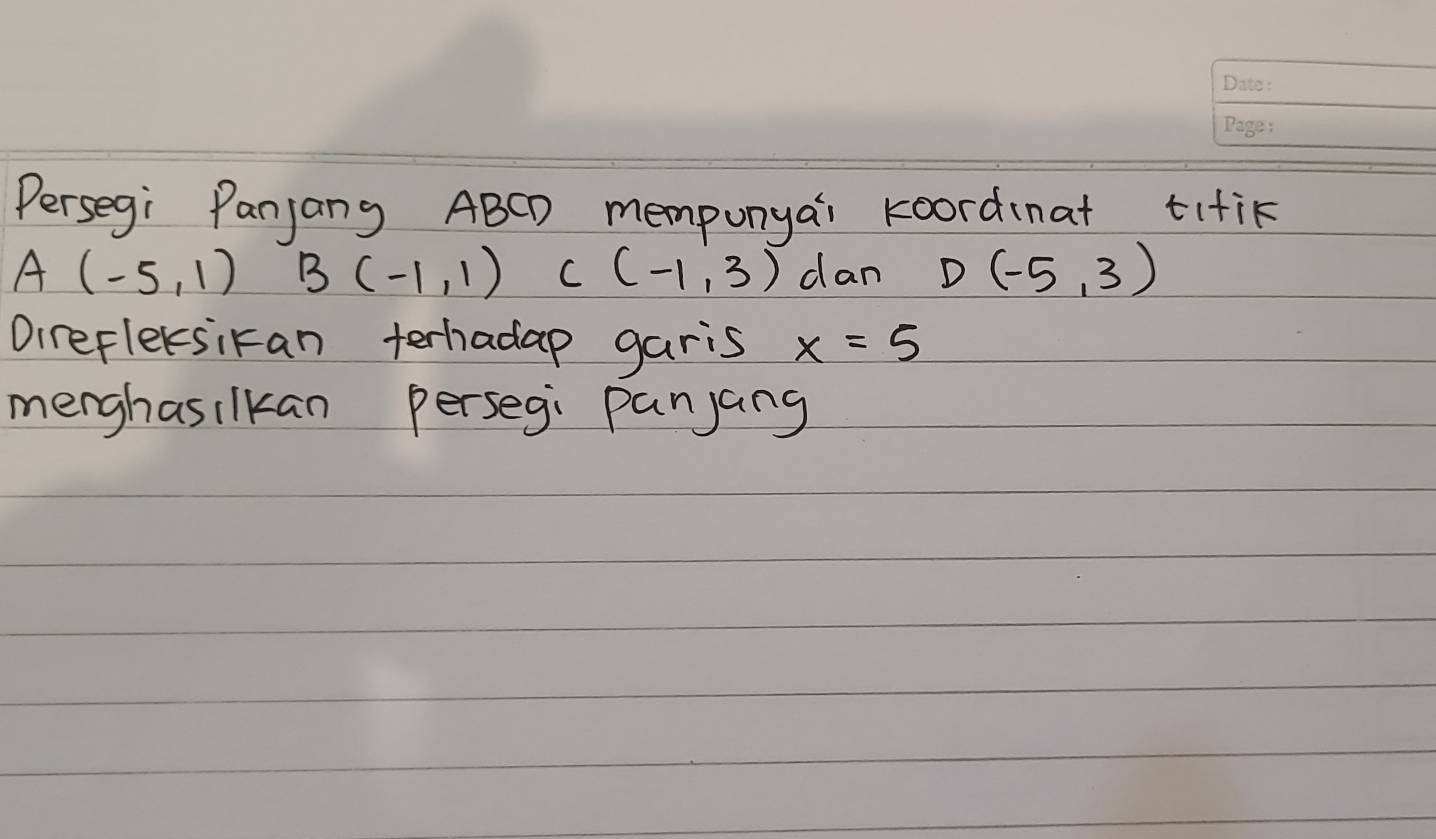 Date:
Page:
Persegi Panjang ABCD mempunyai koordinat titik
A (-5,1) B (-1,1) C (-1,3) dan D (-5,3)
Direfleksikan terhadap garis x = 5
menghasilkan persegi panjang